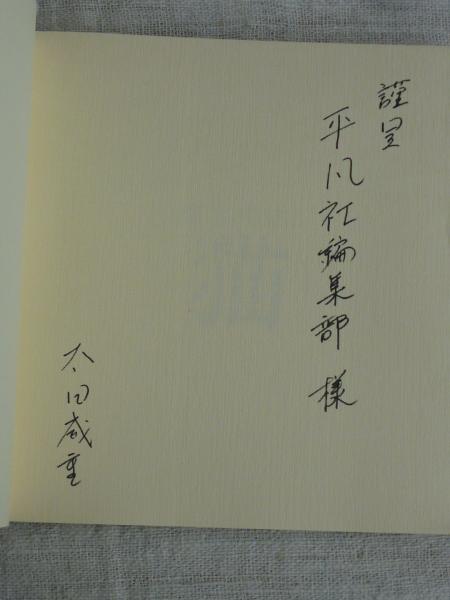 謹呈
平凡社編集部 様
太田威重
猫